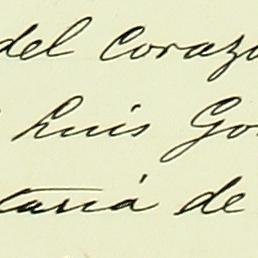 del Corazo
Luis Go
taria de